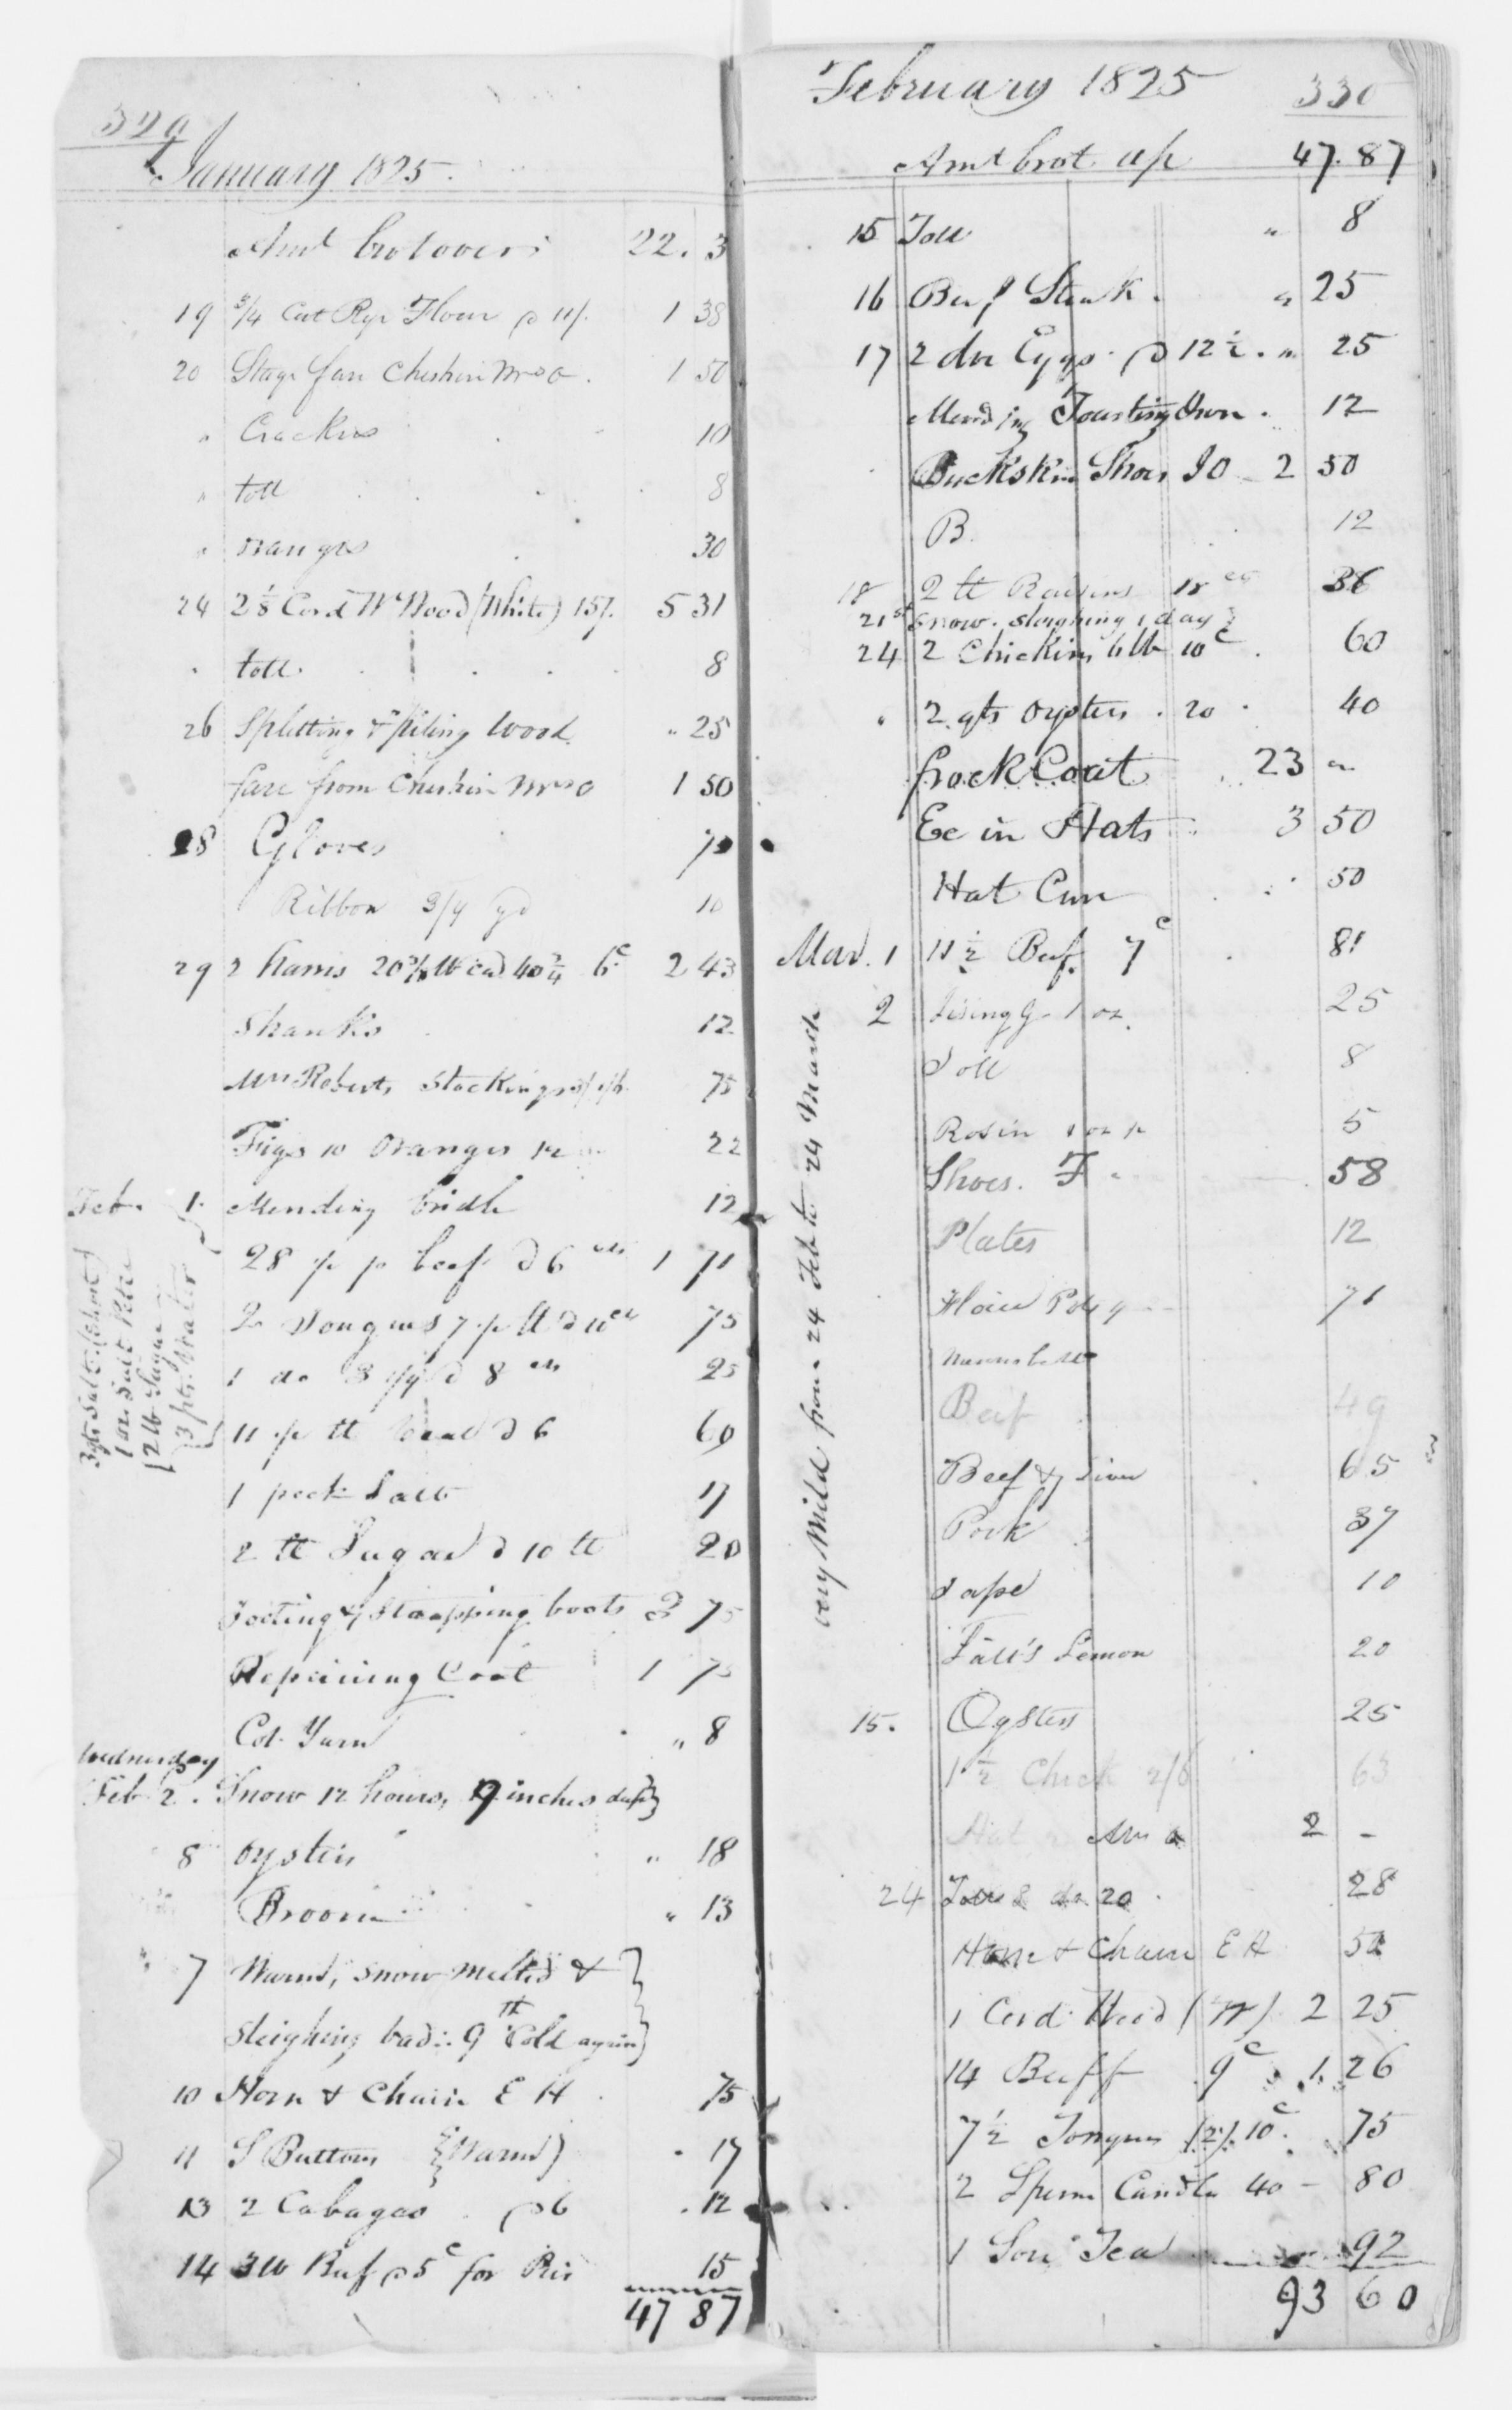 329
January 1825.
Amt brot over 22. 3
19 3/4 Cwt Rye Flour @ 11/. 1 38
20 Stage fare Cheshire Mrs O. 1 50
" Crackers 10
" toll 8
" oranges 30
24 2 1/8 Cord W Wood (White) 15/. 5 31
toll. 8
26 Splitting & piling wood " 25
fare from Cheshire Mrs O 1 50
28 Gloves
Ribbon 3/4 yd 10
29 2 hams 6c 2 43
Shanks 12
Mrs Roberts Stockings 75
Figs 10 Oranges 12 22
Feb. 1. Mending bridle 12
28 p p beef @ 6 cts 1 71
2 Tongues 7 p lb @ 10 cts 75
1 do 3 1/4 @ 8 cts 25
11 p lb @ 6 69
1 peck Salt 17
2 lb Sugar @ 10 lb 20
3 qts Salt
1 oz. Salt Petre
2 lb Sugar
3 pts. Water
Footing & Strapping boots 3 75
Repairing Coat 1 75
Cot. Yarn " 8
Wednesday
Feb 2. Snow 12 hours, 9 inches deep
8 Oysters " 18
Broom " 13
7 Warm, snow melted &
Sleighing bad: 9th Cold again
10 Horse & Chaise E H 75
11 S Buttons {Warm} 17
13 2 Cabages @ 6 12
14 3 lb Beef @ 5c for 15
47 87
February 1825 330
Amt brot up 47. 87
15 Toll " 8
16 Beef Steak. " 25
17 2 doz Eggs @ 12 1/2 . " 25
Mending Toasting Iron. 12
Buckskin Shoes JO 2 50
B. 12
18 2 lb Raisins 18 cts 36
21st Snow. sleighing 1 day
24 2 Chickens 6 lb 10c 60
" 2 qts oysters. 20 40
frock Coat 23 "
Ex in Hats 3 50
Hat Curr 50
Mar. 1 11 1/2 Beef. 7c 81
2 Isingg- 1 oz. 25
Toll 8
Rosin 1 oz 5
Shoes. F 58
Plates 12
71
Beef 49
Beef & Liver 65
Pork 37
Tape 10
Lemon 20
15. Oysters 25
1 1/2 Chick 2/6 63
Hat 2 -
24 Toll 8 do 20 28
Horse & Chaise E H
1 Cord Wood (W) 2 25
14 Beeff 9c 1. 26
7 1/2 Tongues (2). 10c. 75
2 Sperm Candles 40 - 80
1 Sou Tea 92
93 60
very Mild from 24 Feb to 24 March